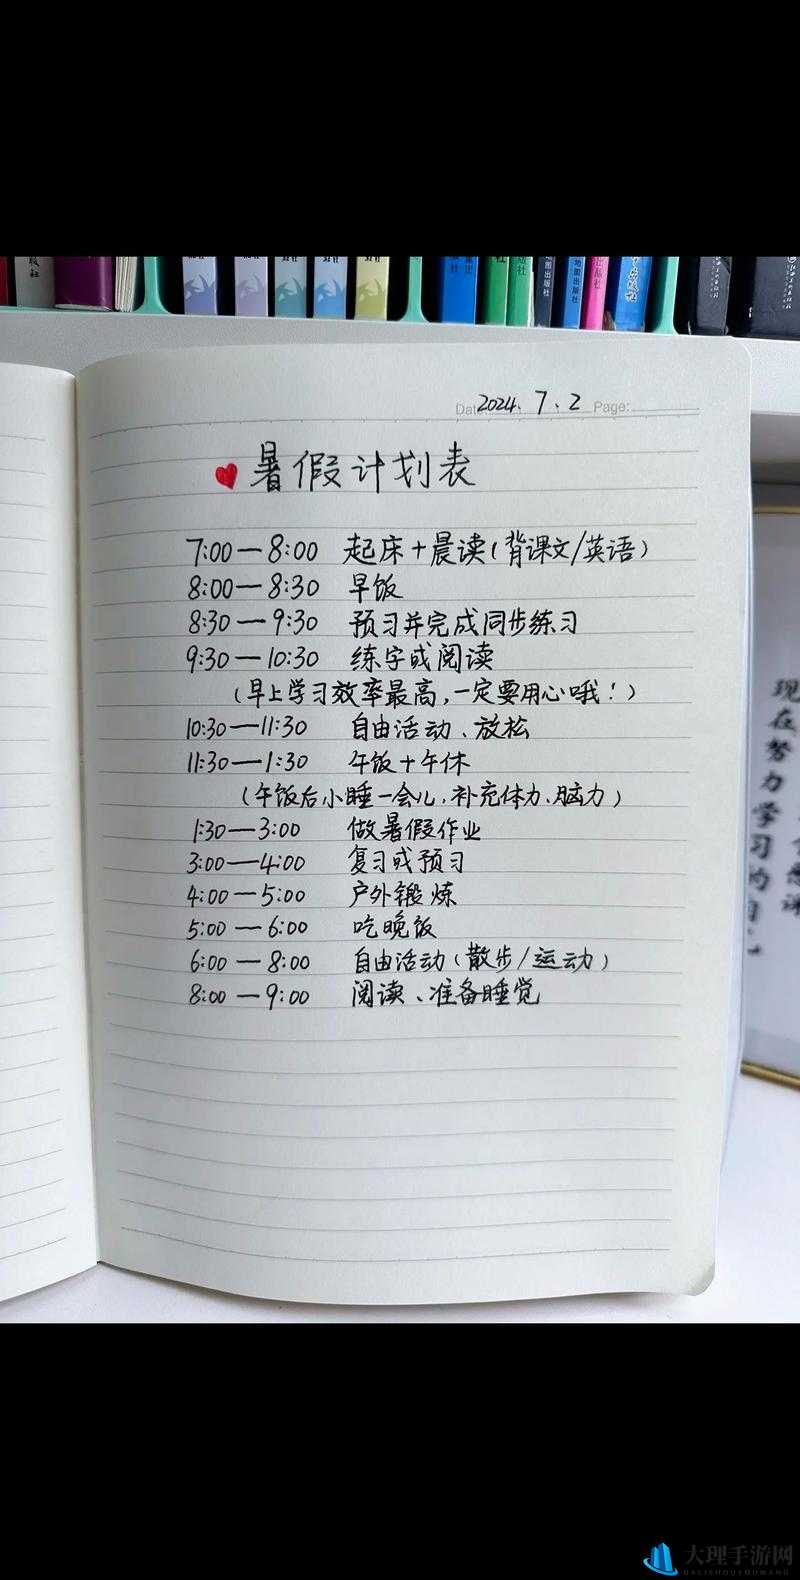 出版社
地图出版社
Date: 2024.7.2 Page:
暑假计划表
7:00—8:00 起床+晨读(背课文/英语)
8:00—8:30 早饭
8:30—9:30 预习并完成同步练习
9:30—10:30 练字或阅读
(早上学习效率最高,一定要用心哦!)
10:30—11:30 自由活动、放松
11:30—1:30 午饭+午休
(午饭后小睡一会儿,补充体力、脑力)
1:30—3:00 做暑假作业
3:00—4:00 复习或预习
4:00—5:00 户外锻炼
5:00—6:00 吃晚饭
6:00—8:00 自由活动(散步/运动)
8:00—9:00 阅读、准备睡觉
现在努力学习的自己
大理手游网
DALISHOUYOUWANG